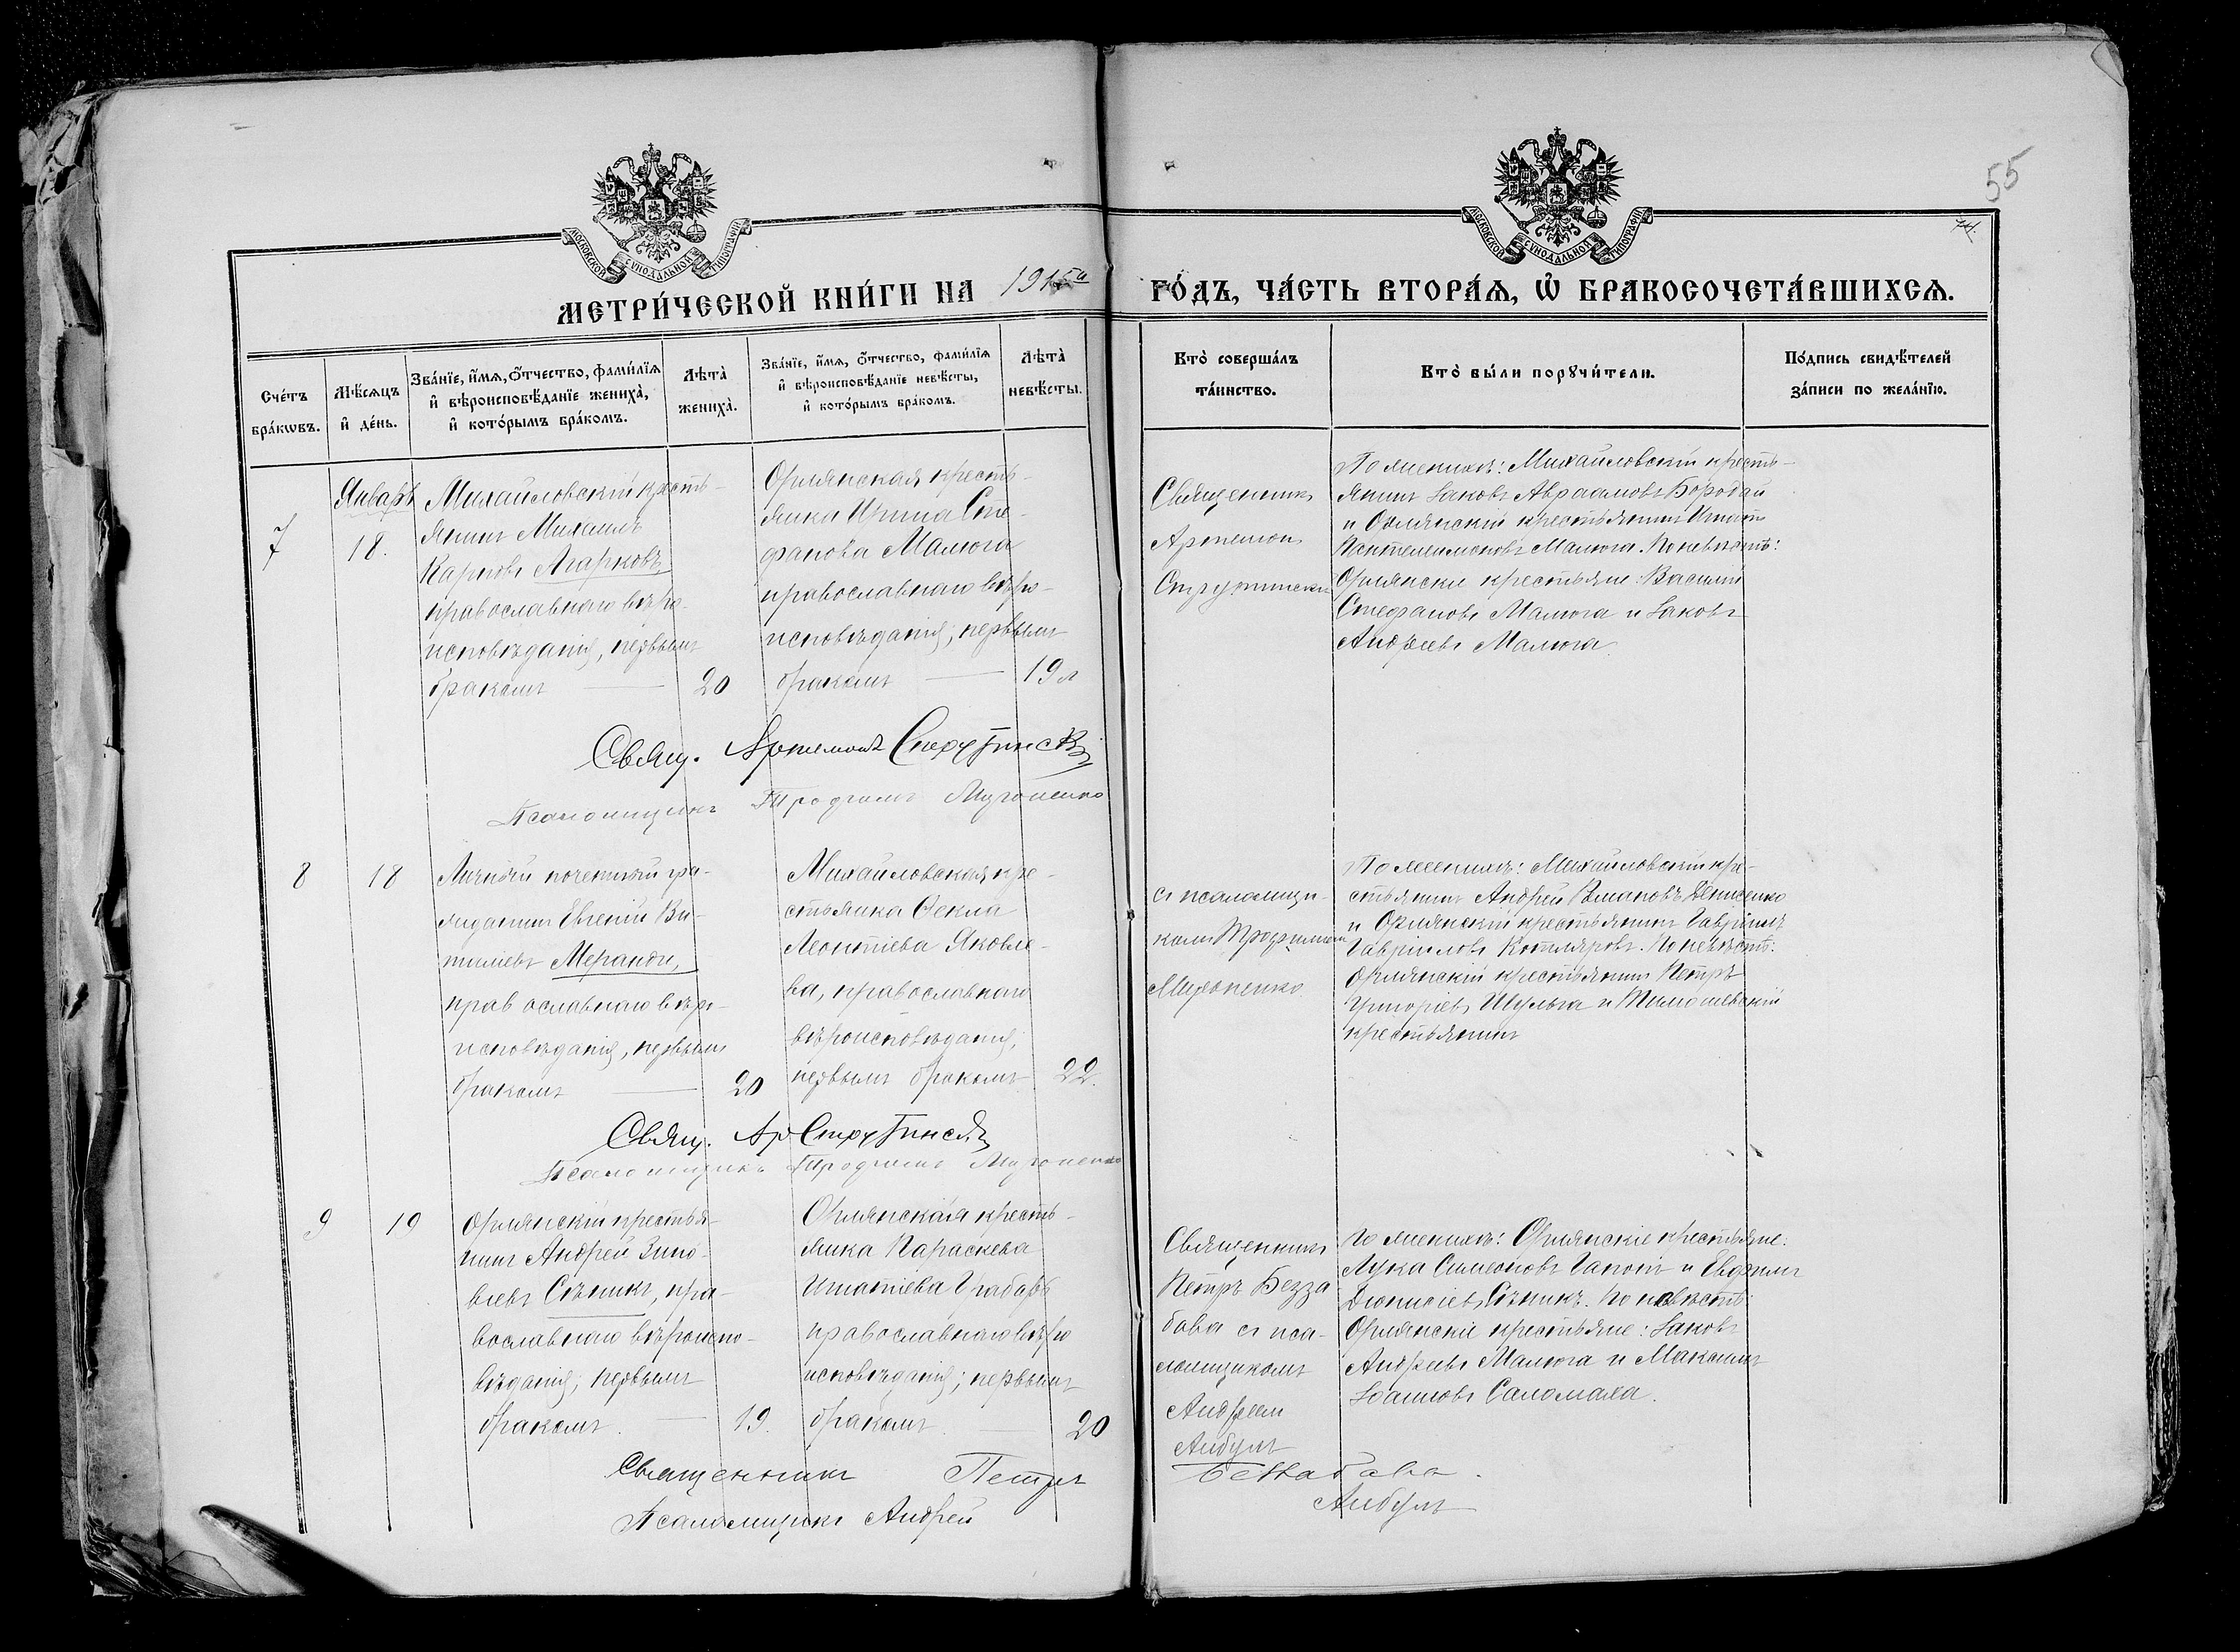 55
74.
МОСКОВСКОЙ СУНОДАЛЬНОЙ ТИПОГРАФІИ
МОСКОВСКОЙ СУНОДАЛЬНОЙ ТИПОГРАФІИ
МЕТРИ́ЧЕСКОЙ КНИ́ГИ НА 1915й ГО́ДЪ, ЧА́СТЬ ВТОРА́Ѧ, Ѡ҆ БРАКОСОЧЕТА́ВШИХСѦ.
Сче́тъ
бра́кѡвъ.
Мѣ́сѧцъ
и҆ де́нь.
Зва́нїе, и҆́мѧ, ѻ҆́тчество, фами́лїѧ
и҆ вѣроисповѣ́данїе жениха̀,
и҆ кото́рымъ бра́комъ.
Лѣта̀
жениха̀.
Зва́нїе, и҆́мѧ, ѻ҆́тчество, фами́лїѧ
и҆ вѣроисповѣ́данїе невѣ́сты,
и҆ кото́рымъ бра́комъ.
Лѣта̀
невѣ́сты.
Кто̀ соверша́лъ
та́инство.
Кто̀ бы́ли порꙋчи́тели.
По́дпись свидѣ́телей
за́писи по жела́нїю.
7
Январь
18.
Михайловскій кресть-
янинъ Михаилъ
Карповъ Агарковъ,
православнаго вѣро-
исповѣданія, первымъ
бракомъ
20
Орлянская кресть-
янка Ирина Сте-
фанова Малюга
православнаго вѣро-
исповѣданія; первымъ
бракомъ
19 л
Священникъ
Артемонъ
По женихѣ: Михайловскій кресть-
янинъ Іаковъ Авраамовъ Бородай
и Орлянскій крестьянинъ Игнатій
Пантелимоновъ Малюга. По невѣстѣ:
Орлянскіе крестьяне: Василій
Стефановъ Малюга и Іаковъ
Андреевъ Малюга.
Свящ. Артемонъ
Псаломщикъ Трофимъ
8
18
Личный почетный гра-
жданинъ Евгеній Ви-
таліевъ Меранди,
православнаго вѣро-
исповѣданія, первымъ
бракомъ
20
Михайловская кре-
стьянка Ѳекла
Леонтіева Яковле-
ва, православнаго
вѣроисповѣданія,
первымъ бракомъ
22.
съ псаломщи-
комъ Трофимомъ
По женихѣ: Михайловскій кре-
стьянинъ Андрей Романовъ Денисенко
и Орлянскій крестьянинъ Гавріилъ
Гавріиловъ Котляровъ. По невѣстѣ:
Орлянскій крестьянинъ Петръ
Григоріевъ Шульга и Тимошевскій
крестьянинъ
Свящ. Ар
Псаломщикъ Трофимъ
9
19
Орлянскій крестья-
нинъ Андрей Зино-
віевъ Сѣникъ, пра-
вославнаго вѣроиспо-
вѣданія; первымъ
бракомъ.
19.
Орлянская кресть-
янка Параскева
Игнатіева Грабарь
православнаго вѣро
исповѣданія; первымъ
бракомъ.
20
Священникъ
Петръ Безза
бава съ пса-
ломщикомъ
Андреемъ
По женихѣ: Орлянскіе крестьяне:
Лука Симеоновъ Гапонъ и Евфимъ
Діонисіевъ Сѣникъ. По невѣстѣ:
Орлянскіе крестьяне: Іаковъ
Андреевъ Малюга и Максимъ
Іоанновъ Саломаха.
Священникъ Петръ Беззабава.
Псаломщикъ Андрей